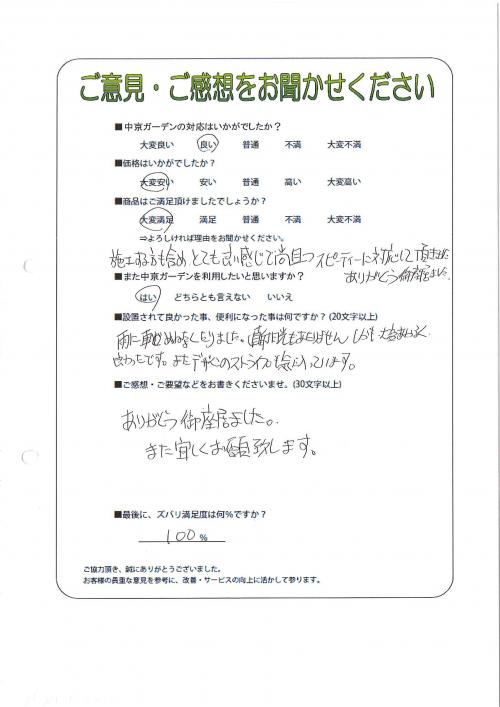 ご意見・ご感想をお聞かせください
■中京ガーデンの対応はいかがでしたか？
大変良い 良い 普通 不満 大変不満
■価格はいかがでしたか？
大変安い 安い 普通 高い 大変高い
■商品はご満足頂けましたでしょうか？
大変満足 満足 普通 不満 大変不満
⇒よろしければ理由をお聞かせください。
施工する方も含め とても良い感じで尚且つスピディーに対応して頂きました
ありがとう御座居ました。
■また中京ガーデンを利用したいと思いますか？
はい どちらとも言えない いいえ
■設置されて良かった事、便利になった事は何ですか？(20文字以上)
雨に車がぬれなくなりました。
良かったです。またデザインのストライプも気に入っています。
■ご感想・ご要望などをお書きくださいませ。(30文字以上)
ありがとう御座居ました。
また宜しくお願い致します。
■最後に、ズバリ満足度は何%ですか？
100 %
ご協力頂き、誠にありがとうございました。
お客様の貴重な意見を参考に、改善・サービスの向上に活かして参ります。